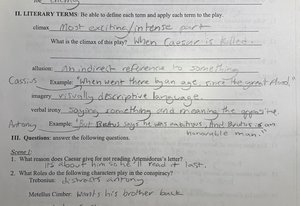 the enemy
II. LITERARY TERMS: Be able to define each term and apply each term to the play.
climax most exciting/intense part
What is the climax of this play? When Caesar is killed.
allusion: an indirect reference to something
Cassius Example: "When went there by an age, since the great flood,"
imagery visually descriptive language
verbal irony saying something and meaning the opposite.
Antony Example: "but Brutus says he was ambitious, And Brutus is an
honorable man."
III. Questions: answer the following questions.
Scene I:
1. What reason does Caesar give for not reading Artemidorus's letter?
It's about him so he'll read it last.
2. What Roles do the following characters play in the conspiracy?
Trebonius: distracts antony
Metellus Cimber: Wants his brother back